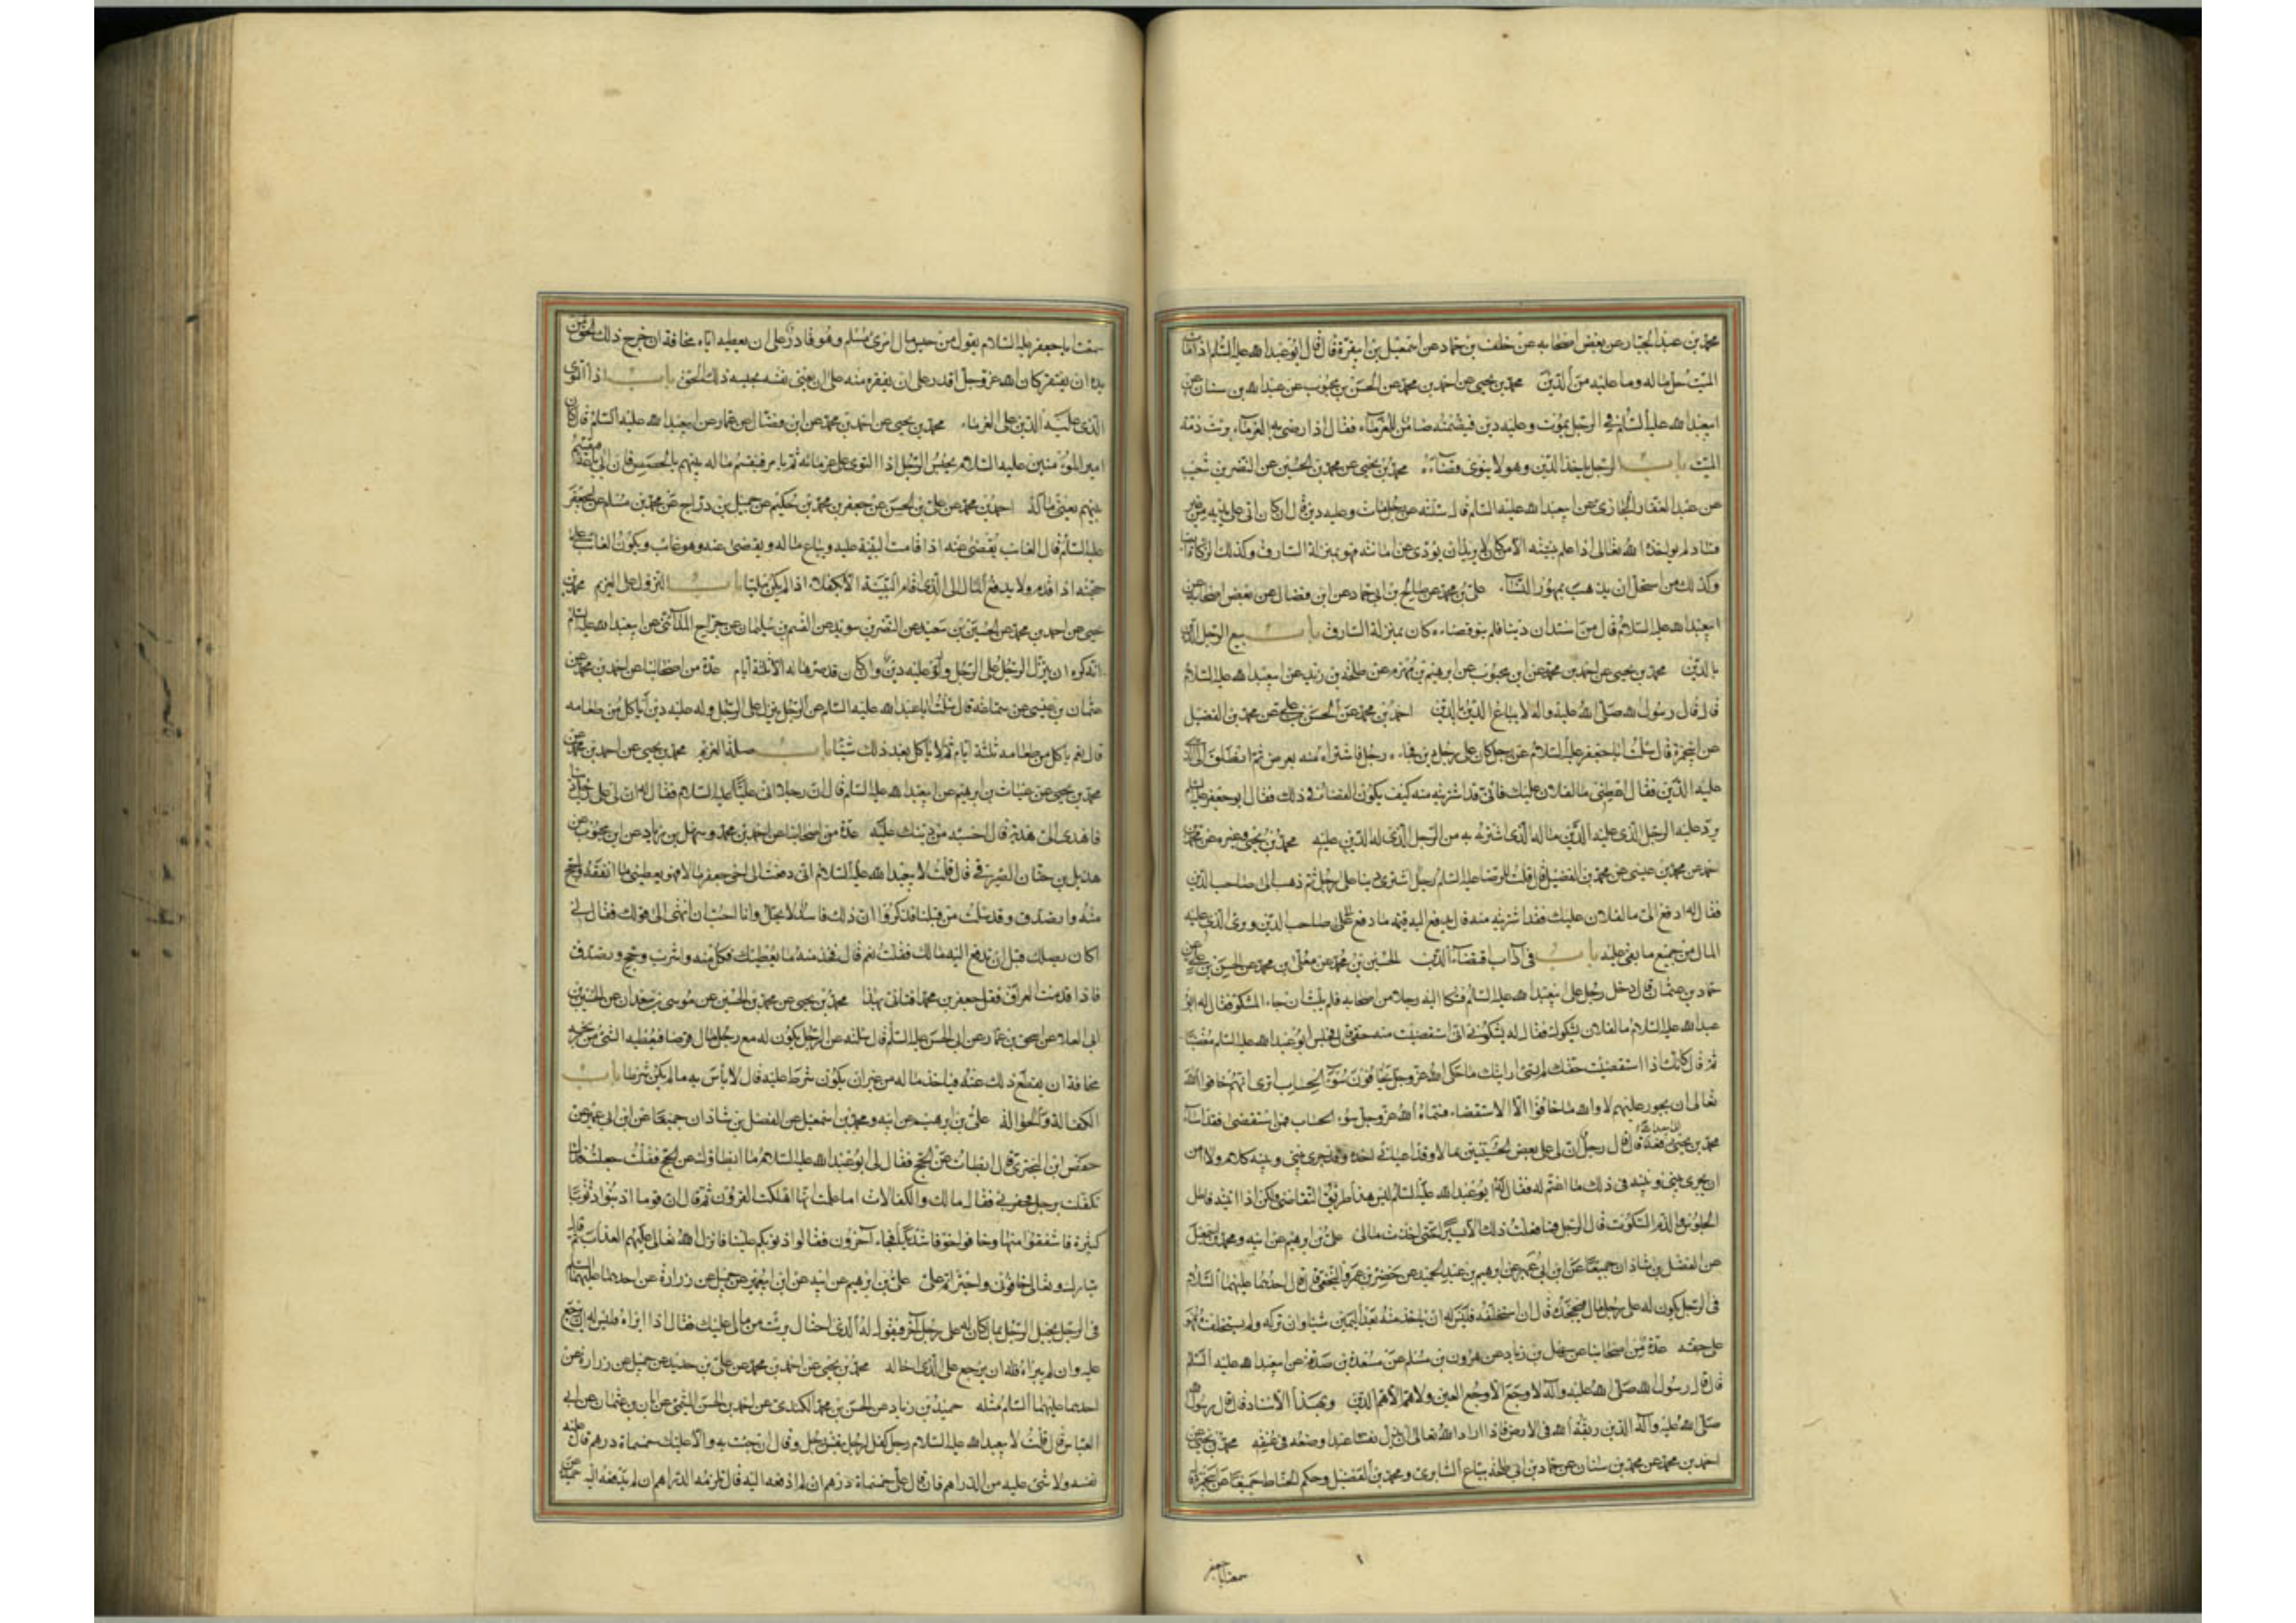 محمد بن عبد الجبار عن بعض اصحابه عن خلف بن حماد عن اسمعيل بن ابى قرة قال قال ابو عبد الله عليه السلم اذا مات
الميت حل ماله وما عليه من الدين محمد بن يحيى عن احمد بن محمد عن الحسن بن محبوب عن عبد الله بن سنان عن
ابيعبد الله عليه السلم فى الرجل يموت وعليه دين فيضمنه ضامن للغرماء فقال اذا رضى به الغرماء برئت ذمة
الميت باب الرجل ياخذ الدين وهو لا ينوى قضاءه محمد بن يحيى عن محمد بن الحسين عن النضر بن شعيب
عن عبد الغفار الجازى عن ابيعبد الله عليه السلم قال سئلته عن رجل مات وعليه دين قال ان كان اتى على يديه من غير
فساد لم يواخذه الله تعالى اذا علم بنيته الا من كان لا يريد ان يؤدى عن امانته فهو بمنزلة السارق وكذلك الزكاة ايضا
وكذلك من استحل ان يذهب بمهور النساء على بن محمد عن صالح بن ابى حماد عن ابن فضال عن بعض اصحابه عن
ابيعبد الله عليه السلام قال من استدان دينا فلم ينو قضاءه كان بمنزلة السارق باب بيع الدين
بالدين محمد بن يحيى عن احمد بن محمد عن ابن محبوب عن ابرهيم بن مهزم عن طلحة بن زيد عن ابيعبد الله عليه السلام
قال قال رسول الله صلى الله عليه واله لا يباع الدين بالدين احمد بن محمد عن الحسن بن على عن محمد بن الفضيل
عن ابيحمزة قال سئلت ابا جعفر عليه السلام عن رجل كان على رجل دين فجاءه رجل فاشتراه منه بعرض ثم انطلق الى الذى
عليه الدين فقال اعطنى مالفلان عليك فانى قد اشتريته منه كيف يكون القضاء فى ذلك فقال ابو جعفر عليه السلم
يرد عليه الرجل الذى عليه الدين ماله الذى اشترى به من الرجل الذى له الدين عليه محمد بن يحيى وغيره عن محمد بن
احمد عن محمد بن عيسى عن محمد بن الفضيل قال قلت للرضا عليه السلم رجل اشترى دينا على رجل ثم ذهب الى صاحب الدين
فقال له ادفع الى مالفلان عليك فقد اشتريته منه قال يدفع اليه قيمة ما دفع الى صاحب الدين وبرئ الذى عليه
المال من جميع ما بقى عليه باب فى آداب اقتضاء الدين الحسين بن محمد عن معلى بن محمد عن الحسن بن على عن
حماد بن عثمان قال دخل رجل على ابيعبد الله عليه السلم فشكا اليه رجلا من اصحابه فلم يلبث ان جاء المشكو فقال له ابو
عبد الله عليه السلام مالفلان يشكوك فقال له يشكونى انى استقضيت منه حقى قال فجلس ابو عبد الله عليه السلم مغضبا
ثم قال كانك اذا استقضيت حقك لم تسئ ارايتك ما حكى الله عز وجل يخافون سوء الحساب اترى انهم خافوا الله
تعالى ان يجور عليهم لا والله ما خافوا الا الاستقضاء فسماه الله عز وجل سوء الحساب فمن استقضى فقد اساء
محمد بن يحيى رفعه قال قال رجل ان لى على بعض الحسنيين مالا وقد اعيانى اخذه وقد جرى بينى وبينه كلام ولا امن
ان يجرى بينى وبينه فى ذلك ما اغتم له فقال له ابو عبد الله عليه السلم ليس هذا طريق التقاضى ولكن اذا اتيته فاطل
الجلوس والزم السكوت قال الرجل فما فعلت ذلك الا يسيرا حتى اخذت مالى على بن ابرهيم عن ابيه ومحمد بن اسمعيل
عن الفضل بن شاذان جميعا عن ابن ابى عمير عن ابرهيم بن عبد الحميد عن خضر بن عمرو النخعى قال قال احدهما عليهما السلام
فى الرجل يكون له على رجل مال فيجحده قال ان استحلفه فليس له ان ياخذ منه بعد اليمين شيئا وان تركه ولم يستحلفه فهو
على حقه عدة من اصحابنا عن سهل بن زياد عن هرون بن مسلم عن مسعدة بن صدقة عن ابيعبد الله عليه السلم
قال قال رسول الله صلى الله عليه واله لا وجع الا وجع العين ولا هم الا هم الدين وبهذا الاسناد قال قال رسول الله
صلى الله عليه واله الدين ربقة الله فى الارض فاذا اراد الله تعالى ان يذل عبدا وضعه فى عنقه محمد بن يحيى عن
احمد بن محمد عن محمد بن سنان عن حماد بن ابى طلحة بياع السابرى ومحمد بن الفضيل وحكم الحناط جميعا عن ابيحمزة قال
سمعت ابا جعفر
سمعت ابا جعفر عليه السلام يقول من حبس مال امرئ مسلم وهو قادر على ان يعطيه اياه مخافة ان خرج ذلك الحق من
يده ان يفتقر كان الله عز وجل اقدر على ان يفقره منه على ان يغنى نفسه بحبسه ذلك الحق باب اذا التوى
الذى عليه الدين على الغرماء محمد بن يحيى عن احمد بن محمد عن ابن فضال عن عمار عن ابيعبد الله عليه السلام قال كان
امير المؤمنين عليه السلام يحبس الرجل اذا التوى على غرمائه ثم يامر فيقسم ماله بينهم بالحصص فان ابى باعه فقسم
بينهم يعنى ماله احمد بن محمد عن على بن الحسن عن جعفر بن محمد بن حكيم عن جميل بن دراج عن محمد بن مسلم عن ابيجعفر
عليه السلم قال الغائب يقضى عنه اذا قامت البينة عليه ويباع ماله ويقضى عنه وهو غائب ويكون الغائب على
حجته اذا قدم ولا يدفع المال الى الذى اقام البينة الا بكفلاء اذا لم يكن مليا باب النزول على الغريم محمد بن
يحيى عن احمد بن محمد عن الحسين بن سعيد عن النضر بن سويد عن القسم بن سليمان عن جراح المداينى عن ابيعبد الله عليه السلم
انه كره ان ينزل الرجل على الرجل وله عليه دين وان كان قد صرها له الا ثلثة ايام عدة من اصحابنا عن احمد بن محمد عن
عثمان بن عيسى عن سماعة قال سئلت ابا عبد الله عليه السلام عن الرجل ينزل على الرجل وله عليه دين اياكل من طعامه
قال نعم ياكل من طعامه ثلثة ايام ثم لا ياكل بعد ذلك شيئا باب هدية الغريم محمد بن يحيى عن احمد بن محمد عن
محمد بن يحيى عن غياث بن ابرهيم عن ابيعبد الله عليه السلم قال ان رجلا اتى عليا عليه السلام فقال له ان لى على رجل دينا
فاهدى الى هدية قال احسبه من دينك عليه عدة من اصحابنا عن احمد بن محمد وسهل بن زياد عن ابن محبوب عن
هذيل بن حنان الصيرفى قال قلت لابيعبد الله عليه السلام انى دفعت الى اخى جعفر مالا فهو يعطينى ما انفقه واحج
منه واتصدق وقد سئلت من قبلنا فذكروا ان ذلك فاسد لا يحل وانا احب ان انتهى الى قولك فقال لى
اكان يصلك قبل ان تدفع اليه مالك فقلت نعم قال فخذ منه ما يعطيك فكل منه واشرب وحج وتصدق
فاذا قدمت العراق فقل جعفر بن محمد افتانى بهذا محمد بن يحيى عن محمد بن الحسين عن موسى بن سعدان عن الحسين بن
ابى العلاء عن اسحق بن عمار عن ابى الحسن عليه السلم قال سئلته عن الرجل يكون له مع رجل مال قرضا فيعطيه الشئ من ربحه
مخافة ان يقطع ذلك عنه فياخذ ماله من غير ان يكون شرط عليه قال لا باس به مالم يكن شرطا باب
الكفالة والحوالة على بن ابرهيم عن ابيه ومحمد بن اسمعيل عن الفضل بن شاذان جميعا عن ابن ابى عمير عن
حفص ابن البخترى قال ابطات عن الحج فقال لى ابو عبد الله عليه السلام ما ابطا بك عن الحج فقلت جعلت فداك
تكفلت برجل فخفر بى فقال مالك والكفالات اما علمت انها اهلكت القرون ثم قال ان قوما اذنبوا ذنوبا
كثيرة فاشفقوا منها وخافوا خوفا شديدا فجاء آخرون فقالوا ذنوبكم علينا فانزل الله تعالى عليهم العذاب ثم قال
تبارك وتعالى خافونى واجتراتم على على بن ابرهيم عن ابيه عن ابن ابيعمير عن جميل عن زرارة عن احدهما عليهما السلم
فى الرجل يحيل الرجل بمال كان له على رجل آخر فيقول له الذى احتال برئت من مالى عليك فقال اذا ابراه فليس له ان يرجع
عليه وان لم يبراه فله ان يرجع على الذى احاله محمد بن يحيى عن احمد بن محمد عن على بن حديد عن جميل عن زرارة عن
احدهما عليهما السلم مثله حميد بن زياد عن الحسن بن محمد الكندى عن احمد بن الحسن الميثمى عن ابان بن عثمان عن ابى
العباس قال قلت لابيعبد الله عليه السلام رجل كفل لرجل بنفس رجل وقال ان جئت به والا عليك خمسماة درهم قال عليه
نفسه ولا شئ عليه من الدراهم فان قال على خمسماة درهم ان لم ادفعه اليه قال تلزمه الدراهم ان لم يدفعه اليه